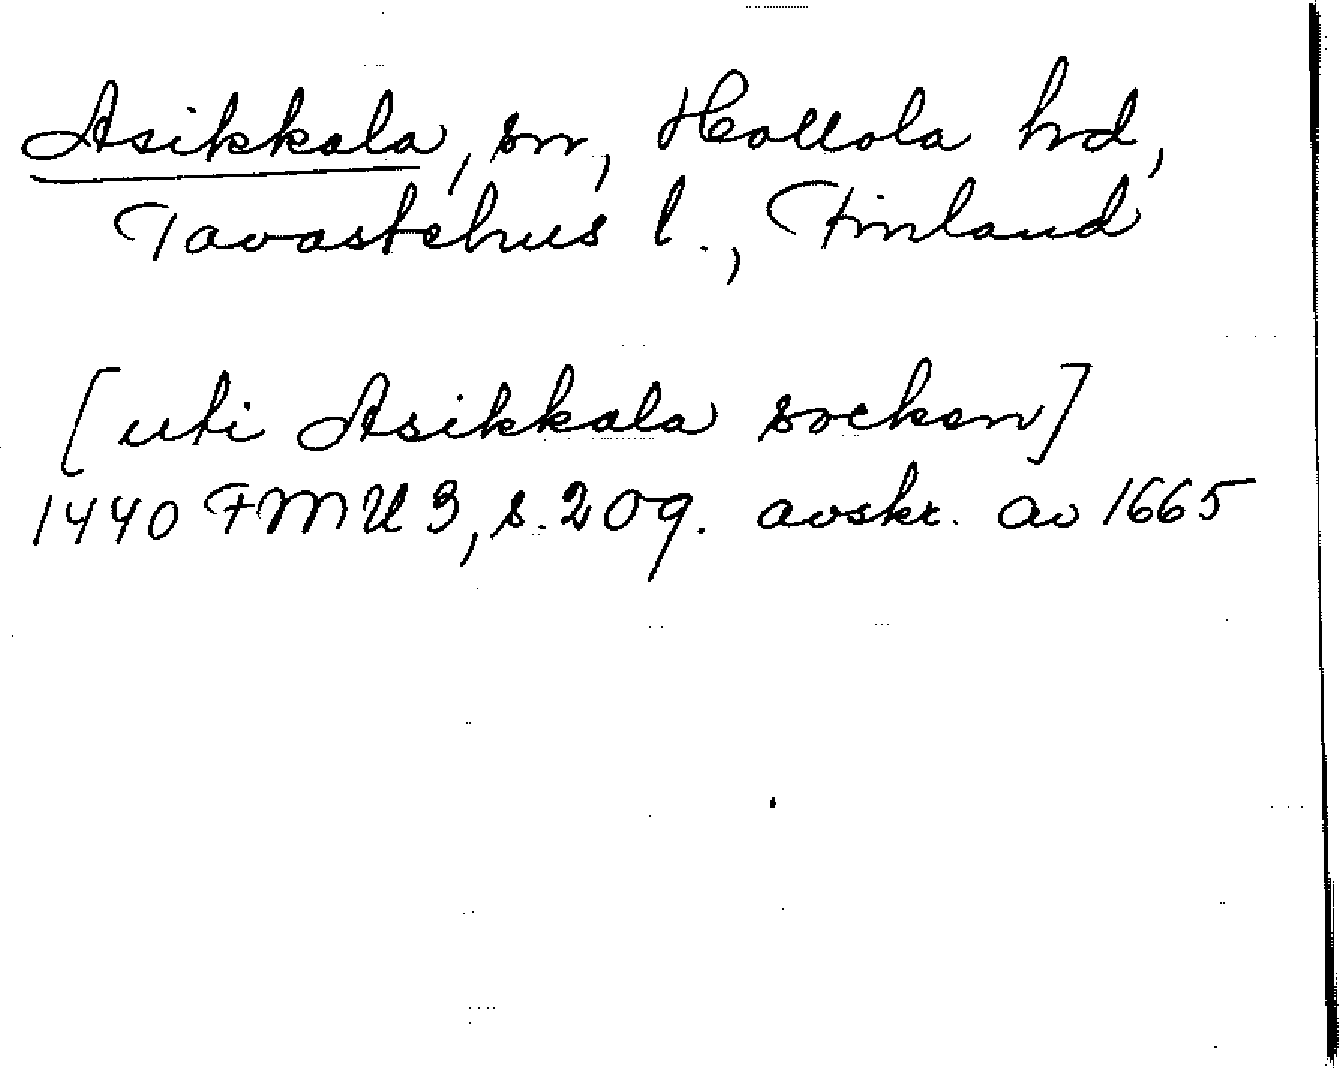 Asikkala, sn, Hollola hd,
Tavastehus l., Finland
[uti Asikkala socken]
1440 FMU 3, s. 209. avskr. av 1665